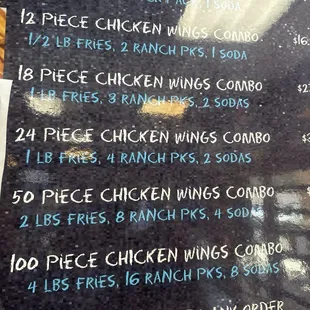 1 SODA
12 PIECE CHICKEN WINGS COMBO
1/2 LB FRIES, 2 RANCH PKS, 1 SODA
18 PIECE CHICKEN WINGS COMBO
1 LB FRIES, 3 RANCH PKS, 2 SODAS
24 PIECE CHICKEN WINGS COMBO
1 LB FRIES, 4 RANCH PKS, 2 SODAS
50 PIECE CHICKEN WINGS COMBO
2 LBS FRIES, 8 RANCH PKS, 4 SODAS
100 PIECE CHICKEN WINGS COMBO
4 LBS FRIES, 16 RANCH PKS, 8 SODAS
ORDER